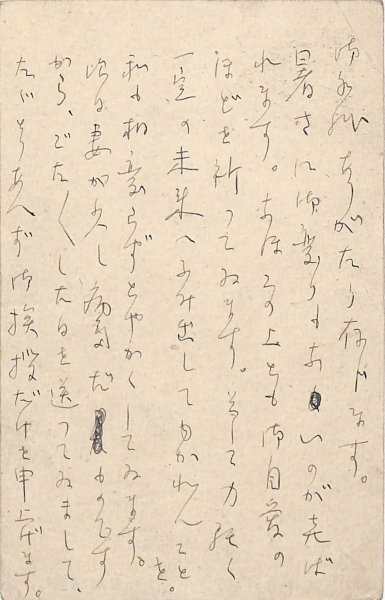 御手紙ありがたう存じます。
暑さに御変りもあいのが喜ば
れます。なほこの上とも御自愛の
ほどを祈つてゐます。そして力強く
一室の未来へふみ出してゆかれんことを。
私も相変らずとやかくしてゐます。
此頃妻が少し病気だものです
から、ごた〱した日を送つてゐまして、
たゞとりあへず御挨拶だけを申上げます。